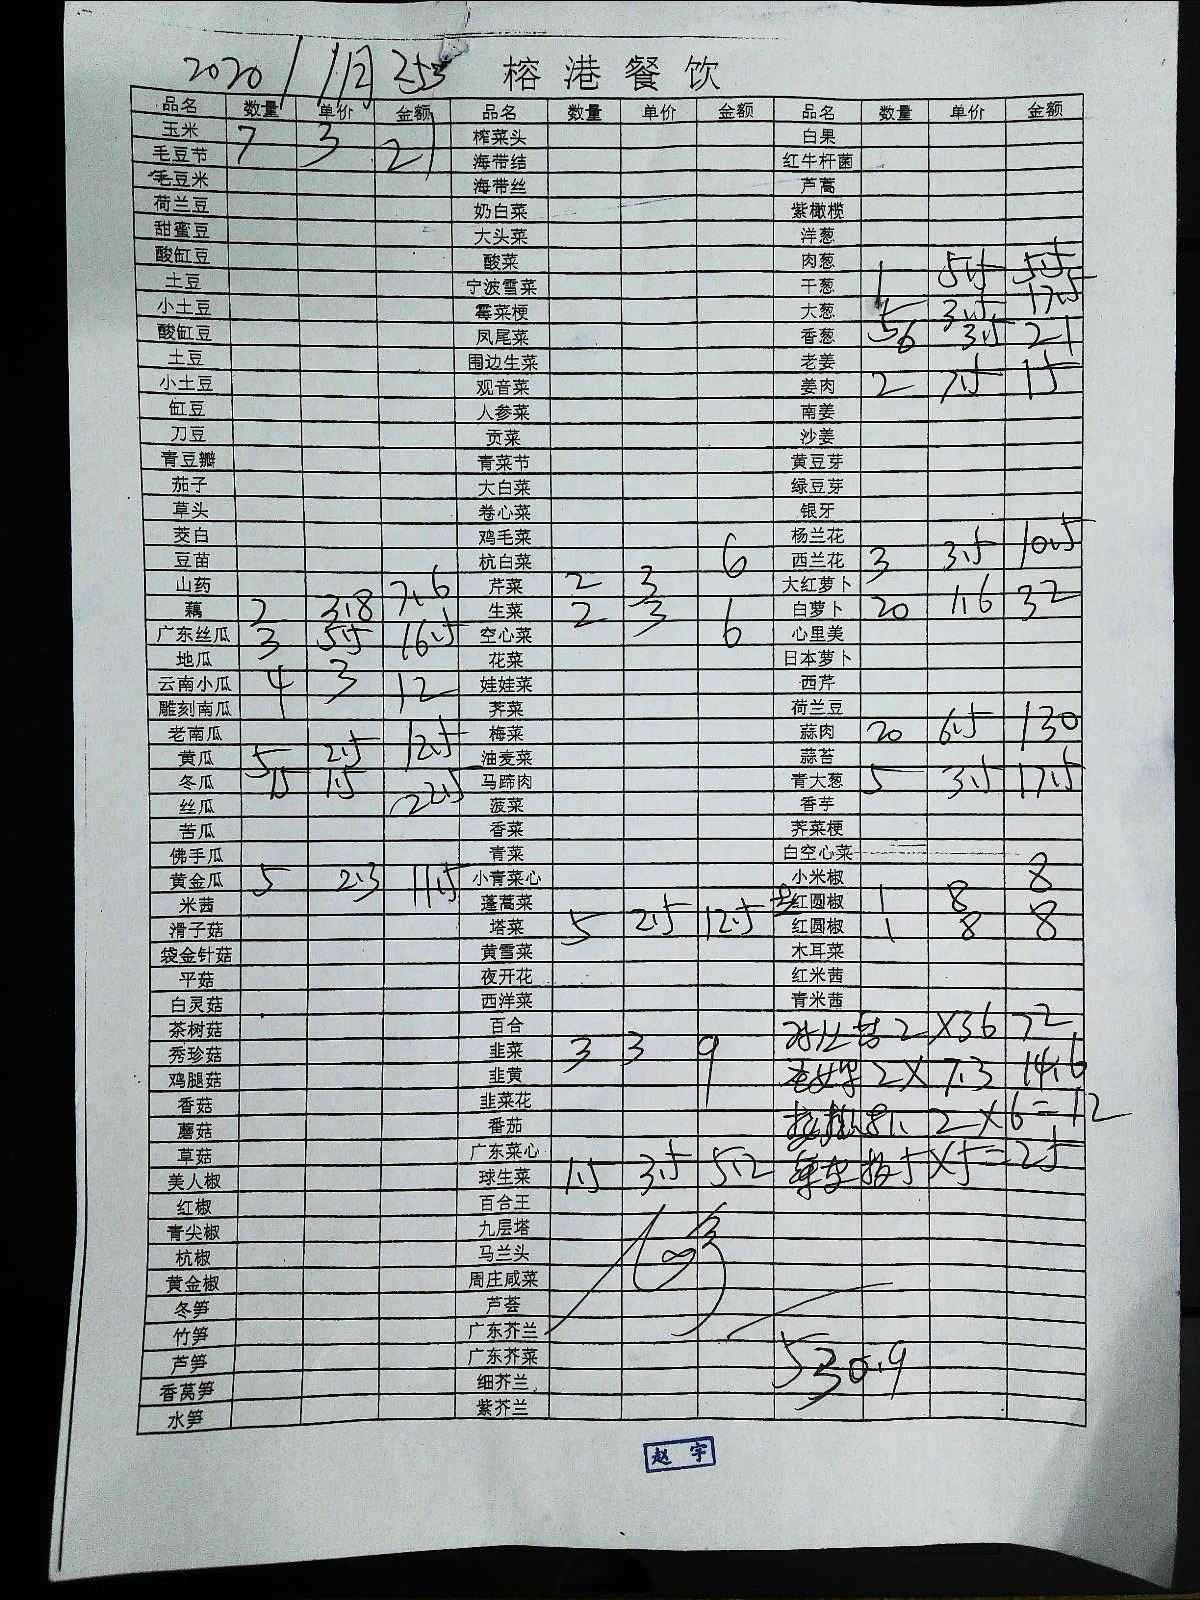 2020/11月25号 榕港餐饮
品名 数量 单价 金额 品名 数量 单价 金额 品名 数量 单价 金额
玉米 7 3 21 榨菜头 白果
毛豆节 海带结 红牛杆菌
毛豆米 海带丝 芦蒿
荷兰豆 奶白菜 紫橄榄
甜蜜豆 大头菜 洋葱
酸缸豆 酸菜 肉葱
土豆 宁波雪菜 干葱 1 5.5 5.5
小土豆 霉菜梗 大葱 5 3.5 17.5
酸缸豆 凤尾菜 香葱 6 3.5 21
土豆 围边生菜 老姜
小土豆 观音菜 姜肉 2 7.5 15
缸豆 人参菜 南姜
刀豆 贡菜 沙姜
青豆瓣 青菜节 黄豆芽
茄子 大白菜 绿豆芽
草头 卷心菜 银牙
茭白 鸡毛菜 杨兰花
豆苗 杭白菜 西兰花 3 3.5 10.5
山药 芹菜 2 3 6 大红萝卜
藕 2 3.8 7.6 生菜 2 3 6 白萝卜 20 1.6 32
广东丝瓜 3 5.5 16.5 空心菜 心里美
地瓜 花菜 日本萝卜
云南小瓜 4 3 12 娃娃菜 西芹
雕刻南瓜 荠菜 荷兰豆
老南瓜 梅菜 蒜肉 20 6.5 130
黄瓜 5 2.5 12.5 油麦菜 蒜苔
冬瓜 15 1.5 22.5 马蹄肉 青大葱 5 3.5 17.5
丝瓜 菠菜 香芋
苦瓜 香菜 荠菜梗
佛手瓜 青菜 白空心菜
黄金瓜 5 2.3 11.5 小青菜心 小米椒
米茜 蓬蒿菜 红圆椒 1 8 8
滑子菇 塔菜 5 2.5 12.5 红圆椒 1 8 8
袋金针菇 黄雪菜 木耳菜
平菇 夜开花 红米茜
白灵菇 西洋菜 青米茜
茶树菇 百合 2×36 72
秀珍菇 韭菜 3 3 9
鸡腿菇 韭黄 2×7.3 14.6
香菇 韭菜花
蘑菇 番茄 2×6=12
草菇 广东菜心
美人椒 球生菜 1.5 3.5 5.2 5×5=25
红椒 百合王
青尖椒 九层塔
杭椒 马兰头
黄金椒 周庄咸菜
冬笋 芦荟
竹笋 广东芥兰
芦笋 广东芥菜 530.9
香莴笋 细芥兰
水笋 紫芥兰
赵宇